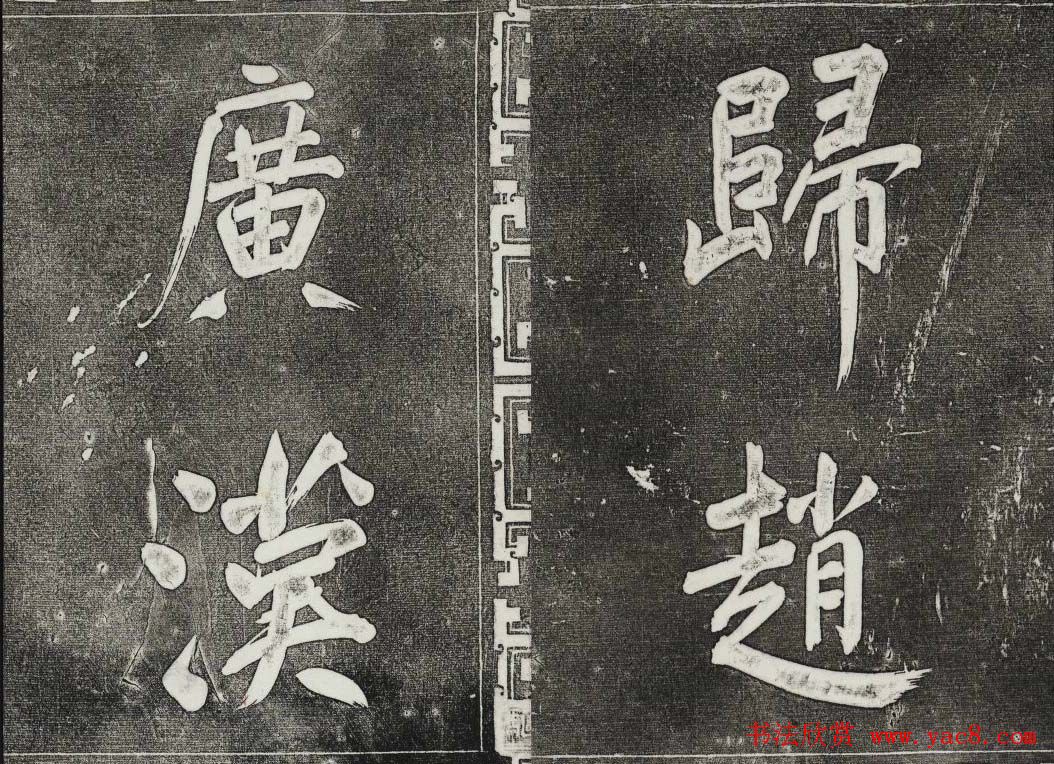 歸趙
廣漢
书法欣赏 www.yac8.com